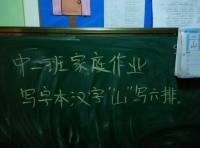 中二班家庭作业
写字本:汉字"山"写六排。